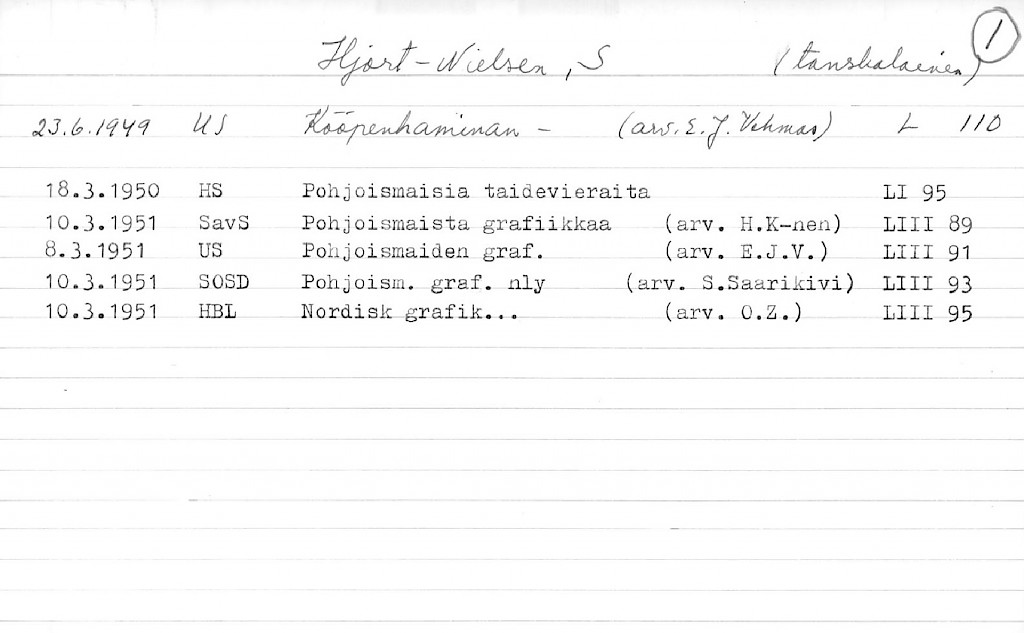 1
Hjort-Nielsen, S (tanskalainen)
23.6.1949 US Kööpenhaminan - (arv. E.J. Vehmas) L 110
18.3.1950 HS Pohjoismaisia taidevieraita LI 95
10.3.1951 SavS Pohjoismaista grafiikkaa (arv. H.K-nen) LIII 89
8.3.1951 US Pohjoismaiden graf. (arv. E.J.V.) LIII 91
10.3.1951 SOSD Pohjoism. graf. nly (arv. S.Saarikivi) LIII 93
10.3.1951 HBL Nordisk grafik... (arv. O.Z.) LIII 95